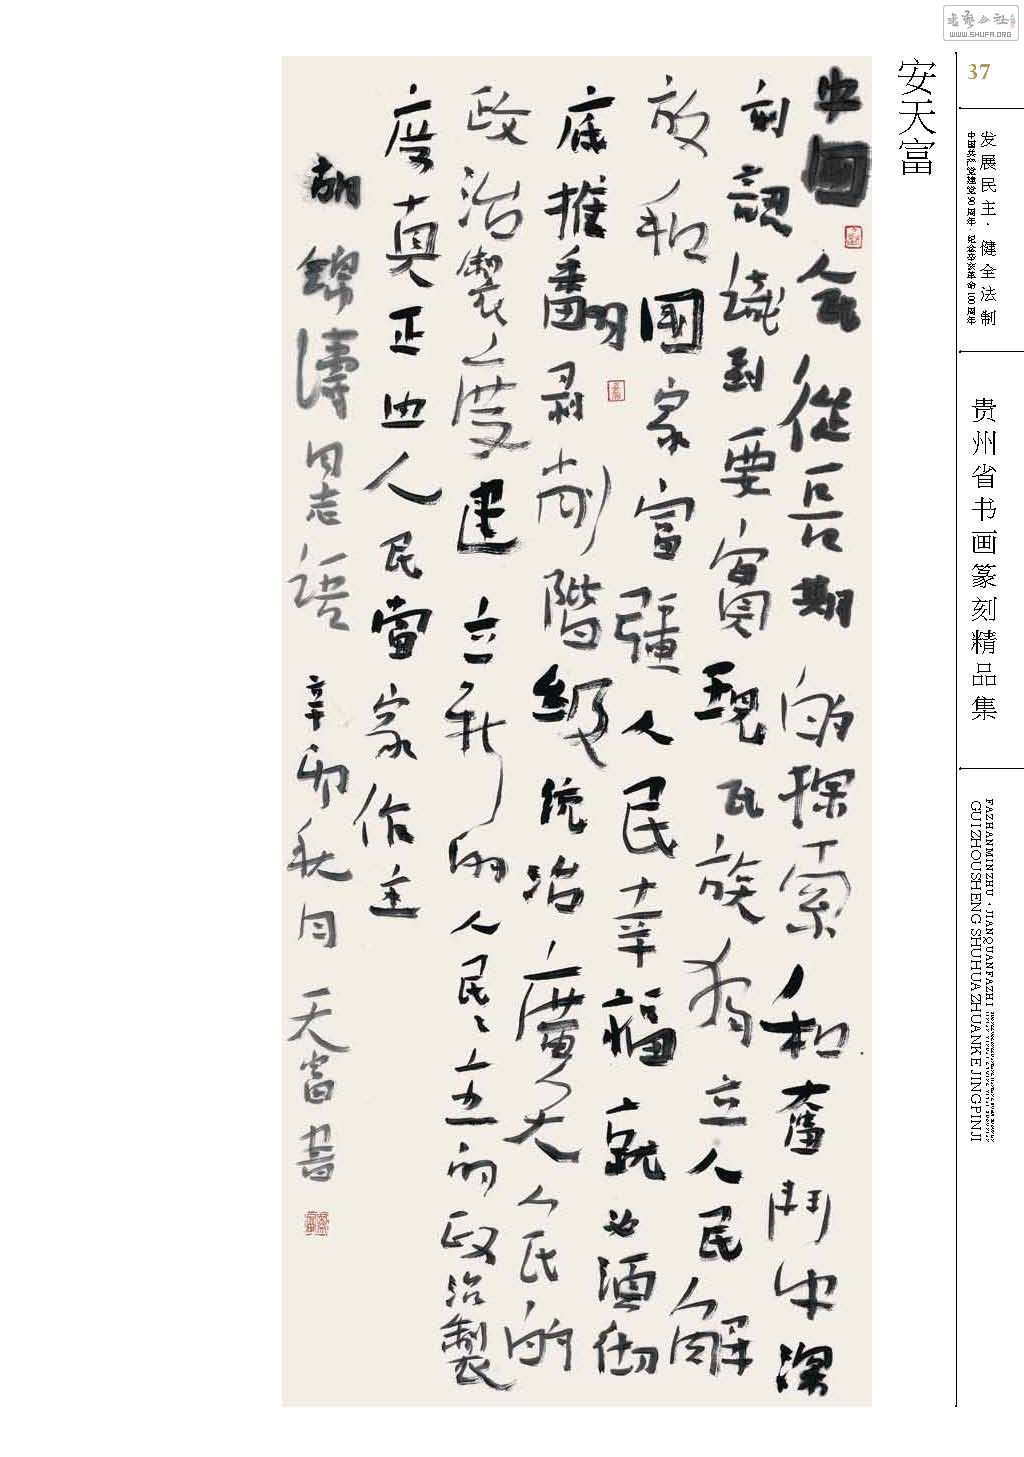 书艺公社
WWW.SHUFA.ORG
37
发展民主·健全法制
中国共产党建党90周年·纪念辛亥革命100周年
贵州省书画篆刻精品集
FAZHANMINZHU·JIANQUANFAZHI
GUIZHOUSHENG SHUHUAZHUANKE JINGPINJI
安天富
中國人民從長期的探索和奮鬥中深
刻認識到要實現民族獨立人民解
放和國家富强人民幸福就必須徹
底推翻剥削階級統治廣大人民的
政治製度建立新的人民民主的政治製
度真正由人民當家作主
胡錦濤同志語 辛卯秋月 天富書